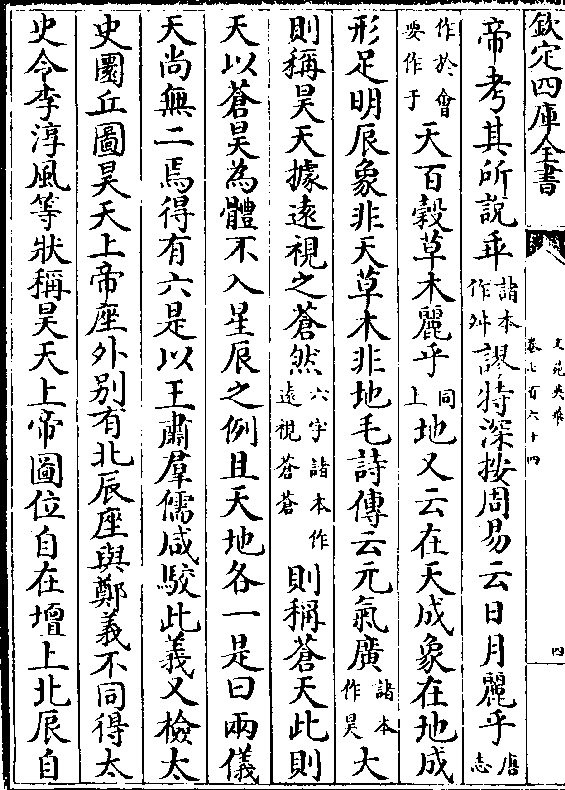 欽定四庫全書
文苑英華
卷七百六十四
四
帝考其所說乖諸本作舛謬特深按周易云日月麗乎唐志
作於會要作于天百穀草木麗乎同上地又云在天成象在地成
形足明辰象非天草木非地毛詩傳云元氣廣諸本作昊大
則稱昊天據遠視之蒼然六字諸本作遠視蒼蒼則稱蒼天此則
天以蒼昊為體不入星辰之例且天地各一是曰兩儀
天尚無二焉得有六是以王肅羣儒咸駮此義又檢太
史圜丘圖昊天上帝座外别有北辰座與鄭義不同得太
史令李淳風等狀稱昊天上帝圖位自在壇上北辰自